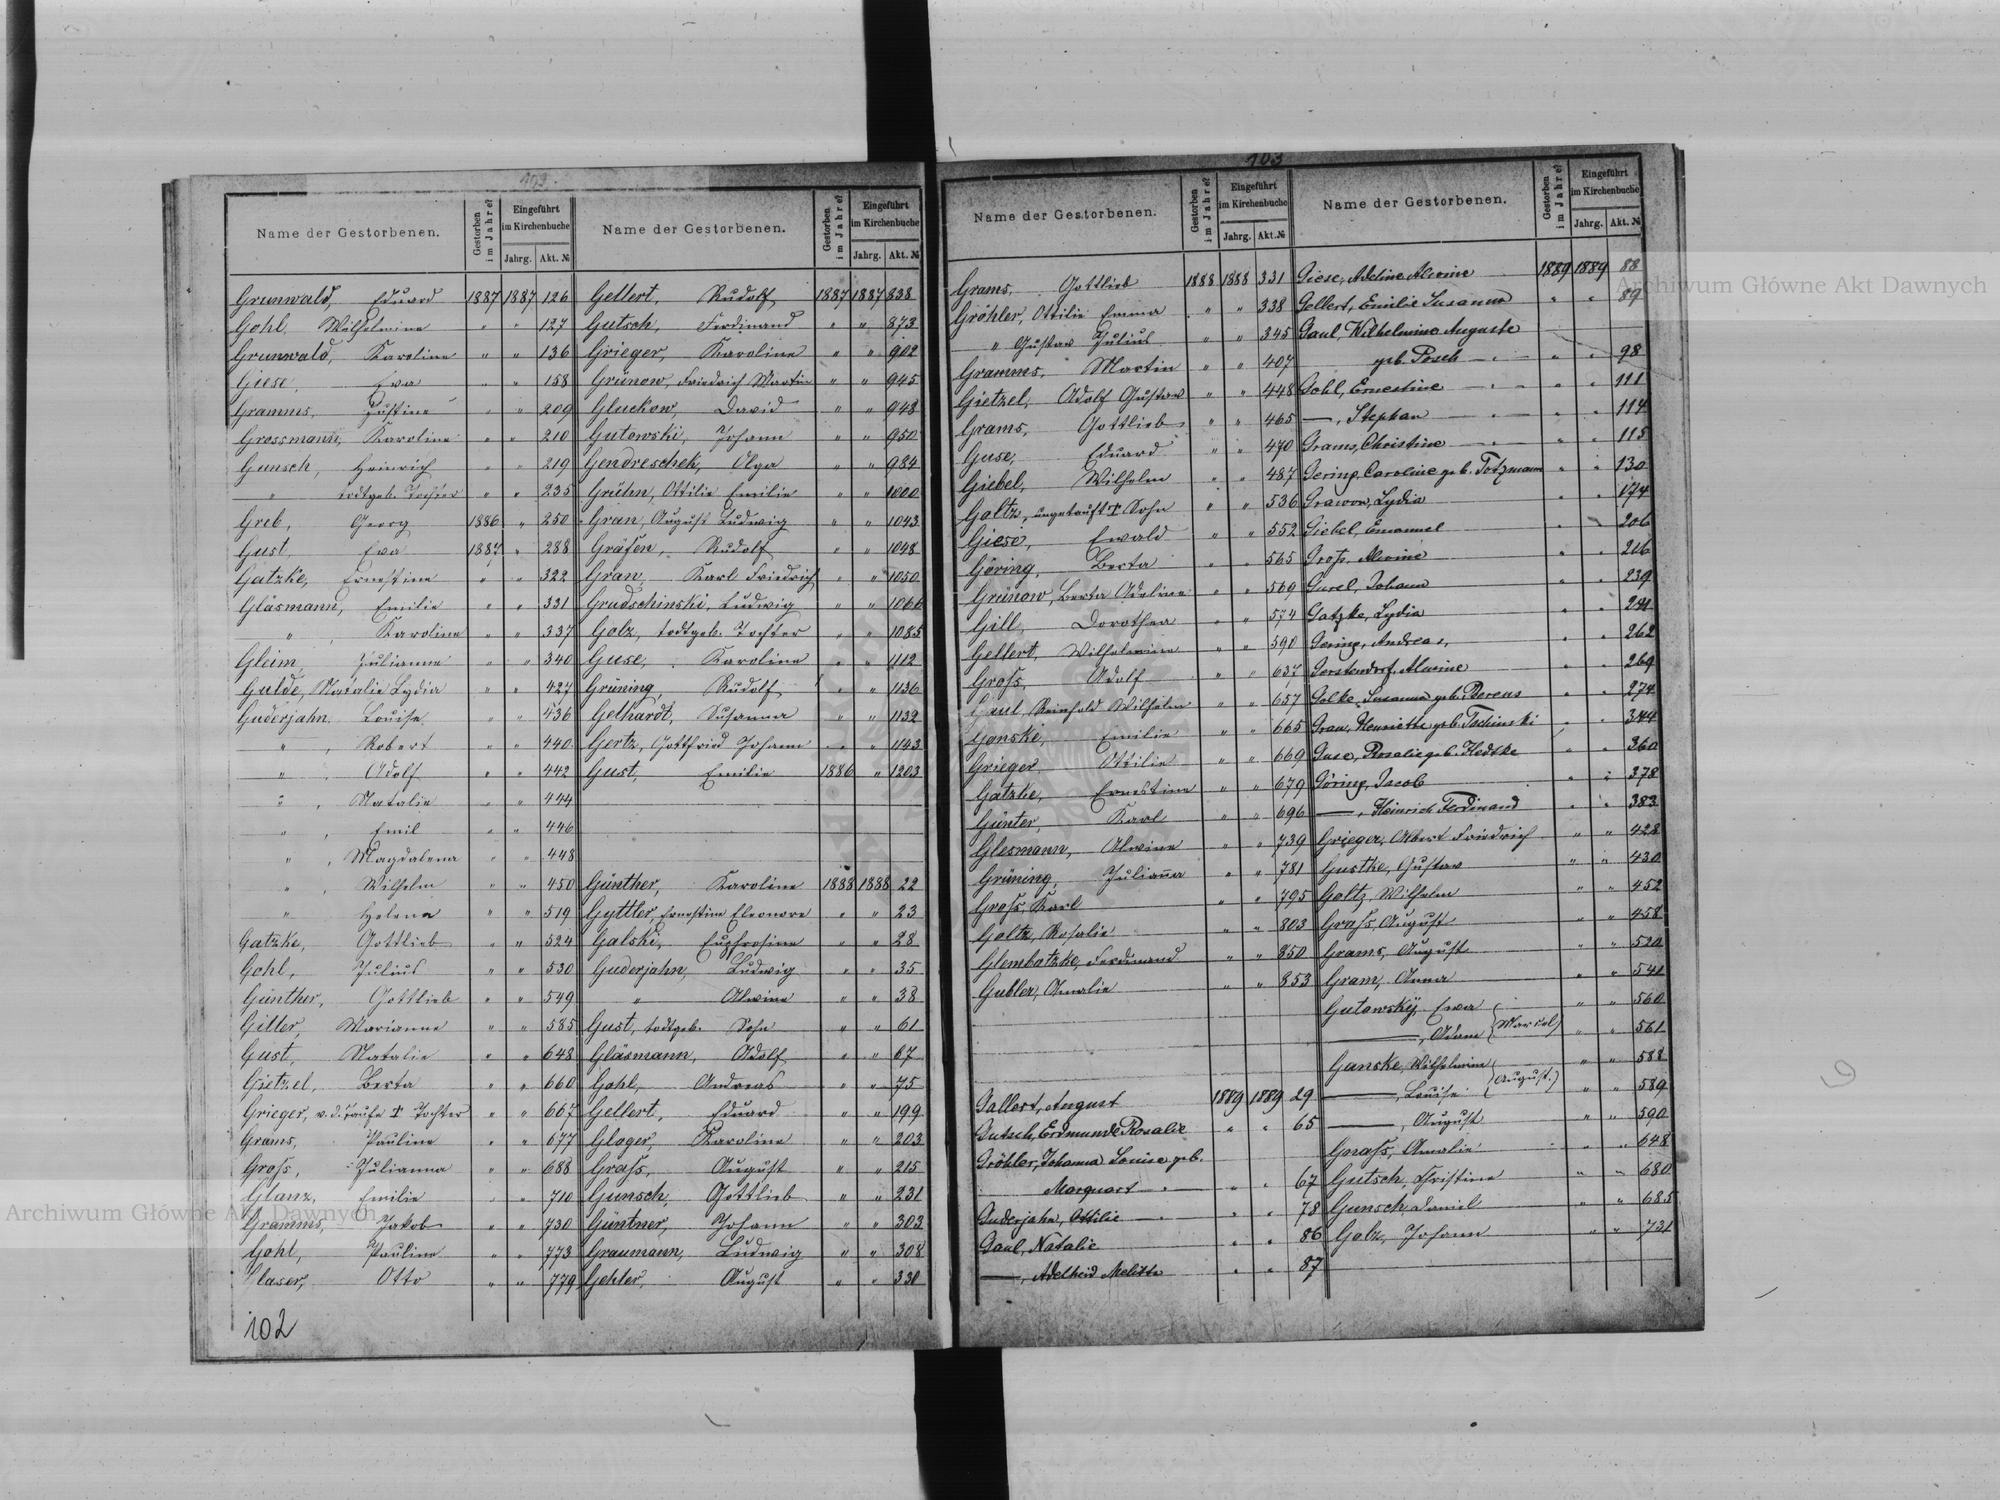 103
Name der Gestorbenen. Gestorben im Jahre? Eingeführt im Kirchenbuche Jahrg. Akt. №
Grunwald, Eduard 1887 1887 126
Gohl, Wilhelmine " " 127
Grunwald, Karoline " " 136
Giese, Eva " " 158
Gramms, Justine " " 209
Grossmann, Karoline " " 210
Gunsch, Heinrich " " 219
" todtgeb. Tochter " " 235
Greb, Georg 1886 " 250
Gust, Eva 1887 " 288
Gatzke, Ernestine " " 322
Gläsmann, Emilie " " 331
" , Karoline " " 337
Gleim, Julianne " " 340
Gulde, Natalie Lydia " " 427
Guderjahn, Louise " " 436
" , Robert " " 440
" , Adolf " " 442
" , Natalie " " 444
" , Emil " " 446
" , Magdalena " " 448
" , Wilhelm " " 450
" Helena " " 519
Gatzke, Gottlieb " " 524
Gohl, Julius " " 530
Günther, Gottlieb " " 549
Gitler, Marianne " " 585
Gust, Natalie " " 648
Gietzel, Berta " " 660
Grieger, v. d. Taufe † Tochter " " 667
Grams, Pauline " " 677
Groß, Julianna " " 688
Glanz, Emilie " " 710
Gramms, Jakob " " 730
Gohl, Pauline " " 773
Glaser, Otto " " 779
102
Name der Gestorbenen. Gestorben im Jahre? Eingeführt im Kirchenbuche Jahrg. Akt. №
Gellert, Rudolf 1887 1887 838
Gutsch, Ferdinand " " 873
Grieger, Karoline " " 902
Grünow, Friedrich Martin " " 945
Gluckow, David " " 948
Gutowski, Johann " " 950
Gendreschek, Olga " " 984
Grühn, Ottilie Emilie " " 1000
Gran, August Ludwig " " 1043
Gräfen, Rudolf " " 1048
Gran, Karl Friedrich " " 1050
Grudschinski, Ludwig " " 1066
Golz, todtgeb. Tochter " " 1085
Guse, Karoline " " 1112
Grüning, Rudolf " " 1136
Gelhardt, Susanna " " 1132
Gertz, Gottfried Johann " " 1143
Gust, Emilie 1886 " 1203
Günther, Karoline 1888 1888 22
Gyttler, Ernestine Eleonore " " 23
Galski, Euphrosine " " 28
Guderjahn, Ludwig " " 35
" Alwine " " 38
Gust, todtgeb. Sohn " " 61
Gläsmann, Adolf " " 67
Gohl, Andreas " " 75
Gellert, Eduard " " 199
Gloger, Karoline " " 203
Graß, August " " 215
Gunsch, Gottlieb " " 231
Güntner, Johann " " 303
Graumann, Ludwig " " 308
Gehler, August " " 330
103
Name der Gestorbenen. Gestorben im Jahre? Eingeführt im Kirchenbuche Jahrg. Akt. №
Grams, Gottlieb 1888 1888 331
Gröhler, Ottilie Emma " " 338
" Gustav Julius " " 345
Gramms, Martin " " 407
Gietzel, Adolf Gustav " " 448
Grams, Gottlieb " " 465
Guse, Eduard " " 470
Giebel, Wilhelm " " 487
Goltz, ungetauft † Sohn " " 536
Giese, Ewald " " 552
Göring, Berta " " 565
Grünow, Berta Adeline " " 569
Gill, Dorothea " " 574
Gellert, Wilhelmine " " 590
Groß, Adolf " " 637
Gaul, Reinhold Wilhelm " " 657
Ganske, Emilie " " 665
Grieger, Ottilie " " 669
Gatzke, Ernestine " " 679
Günter, Karl " " 696
Glesmann, Alwine " " 739
Grüning, Julianna " " 781
Groß, Karl " " 795
Goltz, Rosalie " " 803
Glembotzke, Ferdinand " " 850
Gubler, Amalie " " 853
Gallert, August 1889 1889 29
Gutsch, Erdmunde Rosalie " " 65
Gröhler, Johanna Louise geb.
Marquart " " 67
Guderjahn, Ottilie " " 78
Gaul, Natalie " " 86
—, Adelheid Melitta " " 87
Name der Gestorbenen. Gestorben im Jahre? Eingeführt im Kirchenbuche Jahrg. Akt. №
Giese, Adeline Alwine 1889 1889 88
Gellert, Emilie Susanna " " 89
Gaul, Wilhelmine Auguste
geb. Posch " " 98
Gohl, Ernestine " " 111
—, Stephan " " 114
Grams, Christine " " 115
Gering, Caroline geb. Totzmann " " 130
Grawon, Lydia " " 174
Giebel, Emanuel " " 206
Groß, Alwine " " 216
Gurel, Johann " " 239
Gatzke, Lydia " " 241
Gering, Andreas, " " 262
Gerstendorf, Alwine " " 269
Golke, Susanna geb. Berens " " 274
Grau, Henriette geb. Tschinski " " 344
Guse, Rosalie geb. Hedtke " " 360
Göring, Jacob " " 378
—, Heinrich Ferdinand " " 383
Grieger, Albert Friedrich " " 428
Gustke, Gustav " " 430
Goltz, Wilhelm " " 452
Graß, August " " 458
Grams, August " " 520
Gram, Anna " " 541
Gutowsky, Ewa " " 560
—, Adam (Marcel) " " 561
Ganske, Wilhelmine " " 588
—, Louise (August.) " " 589
—, August " " 590
Gnaß, Amalie " " 648
Gutsch, Christine " " 680
Gunsch, Daniel " " 685
Golz, Johann " " 731
Archiwum Główne Akt Dawnych
Archiwum Główne Akt Dawnych